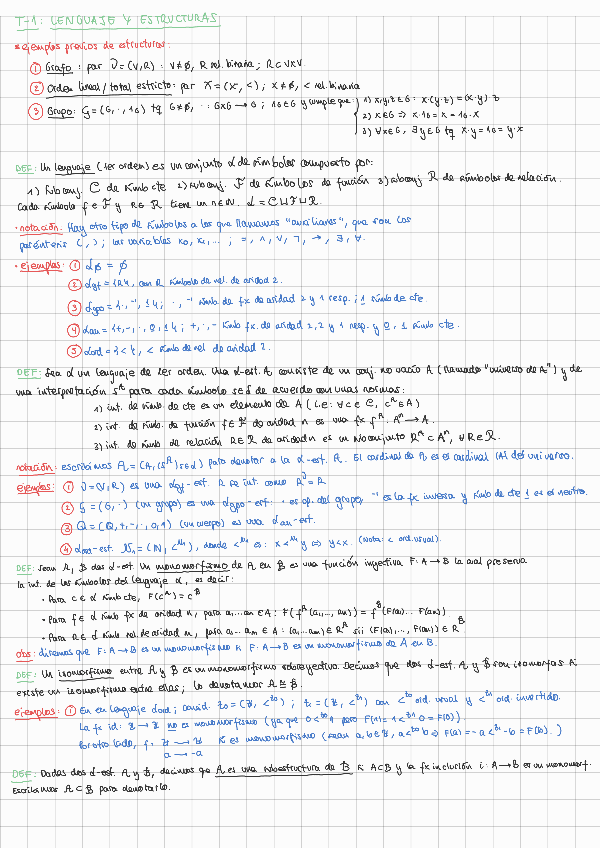 T-1: LENGUAJE Y ESTRUCTURAS
* ejemplos previos de estructuras:
① Grafo: par 𝒱=(V,R): V≠∅, R rel. binaria; R⊂V×V.
② Orden lineal/total estricto: par X=(X,<); X≠∅, < rel. binaria
③ Grupo: G=(G,·,1G) tq G≠∅, ·: G×G→G; 1G∈G y cumple que: 1) x,y,z∈G: x·(y·z)=(x·y)·z
2) x∈G ⇒ x·1G=x=1G·x
3) ∀x∈G, ∃y∈G tq x·y=1G=y·x
DEF: Un lenguaje (1er orden) es un conjunto L de símbolos compuesto por:
1) subconj. C de símb cte 2) subconj. F de símbolos de función 3) subconj R de símbolos de relación.
Cada símbolo f∈F y R∈R tiene un n∈N. L=C⊔F⊔R.
· notación: Hay otro tipo de símbolos a los que llamamos "auxiliares", que son los
paréntesis (,); las variables x0, x1,...; =, ∧, ∨, ¬, →, ∃, ∀.
· ejemplos: ① L∅ = ∅
② Lgf={R}, con R símbolo de rel. de aridad 2.
③ Lgpo={·,⁻¹,1}; ·,⁻¹ símb. de fx de aridad 2 y 1 resp.; 1 símb de cte.
④ Lan={+,-,·,0,1}; +,·,- símb fx. de aridad 2,2 y 1 resp. y 0,1 símb cte.
⑤ Lord={<}, < símb de rel. de aridad 2.
DEF: Sea L un lenguaje de 1er orden. Una L-est. A consiste de un conj. no vacío A (llamado "universo de A") y de
una interpretación s^A para cada símbolo s∈L de acuerdo con unas normas:
1) int. de símb. de cte es un elemento de A (i.e: ∀c∈C, c^A∈A)
2) int. de símb. de función f∈F de aridad n es una fx f^A: A^n→A.
3) int. de símb de relación R∈R de aridad n es un subconjunto R^A⊂A^n, ∀R∈R.
notación: escribimos A=(A,(s^A)s∈L) para denotar a la L-est. A. El cardinal de A es el cardinal |A| del universo.
ejemplos: ① 𝒱=(V,R) es una Lgf-est. R se int. como R^𝒱=R
② G=(G,·) (un grupo) es una Lgpo-est: · es op. del grupo, ⁻¹ es la fx inversa y símb de cte 1 es el neutro.
③ Q=(Q,+,-,·,0,1) (un cuerpo) es una Lan-est.
④ Lord-est. N1=(N,<^N1), donde <^N1 es: x<^N1 y ⇔ y<x. (Nota: < ord. usual).
DEF: Sean A, B dos L-est. Un monomorfismo de A en B es una función inyectiva F:A→B la cual preserva
la int. de los símbolos del lenguaje L, es decir:
· Para c∈L símb cte, F(c^A)=c^B
· Para f∈L símb fx de aridad n, para a1,...an∈A: F(f^A(a1,..., an))=f^B(F(a1)... F(an))
· Para R∈L símb rel. de aridad n, para a1...an∈A: (a1,...an)∈R^A sii (F(a1),..., F(an))∈R^B
obs: diremos que F:A→B es un monomorfismo si F:A→B es un monomorfismo de A en B.
DEF: Un isomorfismo entre A y B es un monomorfismo sobreyectivo. Decimos que dos L-est. A y B son isomorfas si
existe un isomorfismo entre ellas; lo denotamos A≅B.
ejemplos: ① En en lenguaje Lord; consid: Z0=(Z,<^Z0); Z1=(Z,<^Z1) con <^Z0 ord. usual y <^Z1 ord. invertido.
La fx id: Z→Z no es monomorfismo (ya que 0<^Z0 1 pero F(1)=1<^Z1 0=F(0)).
Por otro lado, f: Z→Z sí es monomorfismo (sean a,b∈Z, a<^Z0 b ⇔ F(a)=-a<^Z1 -b=F(b).)
a→-a
DEF: Dadas dos L-est. A y B, decimos que A es una subestructura de B si A⊂B y la fx inclusión i:A→B es un monomorf.
Escribimos A⊂B para denotarlo.